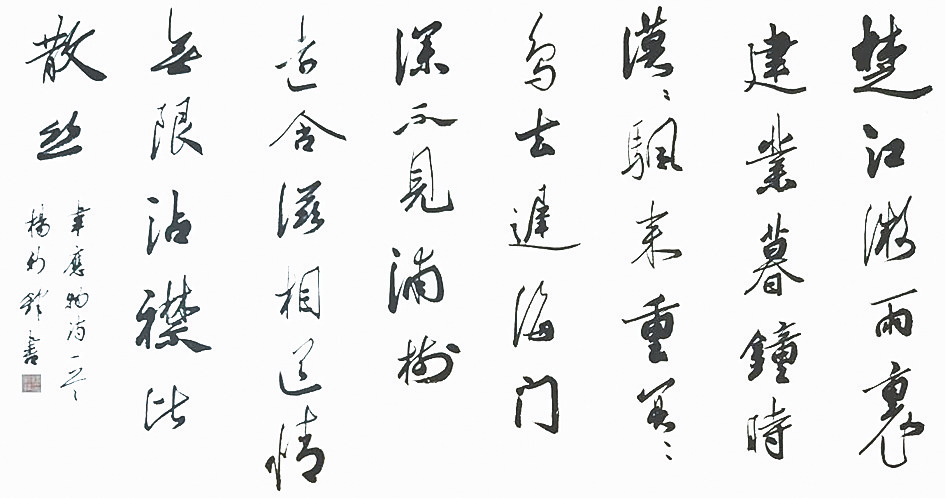 楚江微雨裏
建業暮鐘時
漠〻颿来重冥〻
鸟去遲海门
深不見浦樹
遠含滋相送情
無限沾襟比
散丝
韋應物诗一首
楊 書